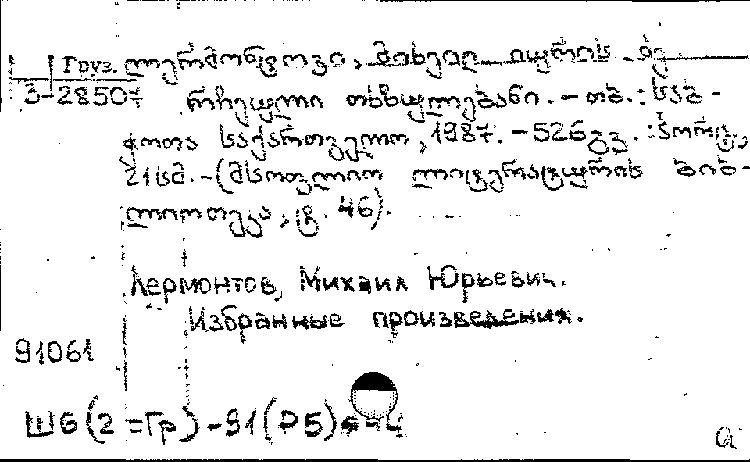 Груз. ლერმონტოვი, მიხეილ იურის ძე
3-28507 რჩეული თხზულებანი. – თბ. : საბ-
ჭოთა საქართველო, 1987. – 526გვ. : პორტ.,
21სმ. – (მსოფლიო ლიტერატურის ბიბ-
ლიოთეკა, ტ. 46).
Лермонтов, Михаил Юрьевич.
Избранные произведения.
91061
Ш6(2=Гр)-91(Р5)